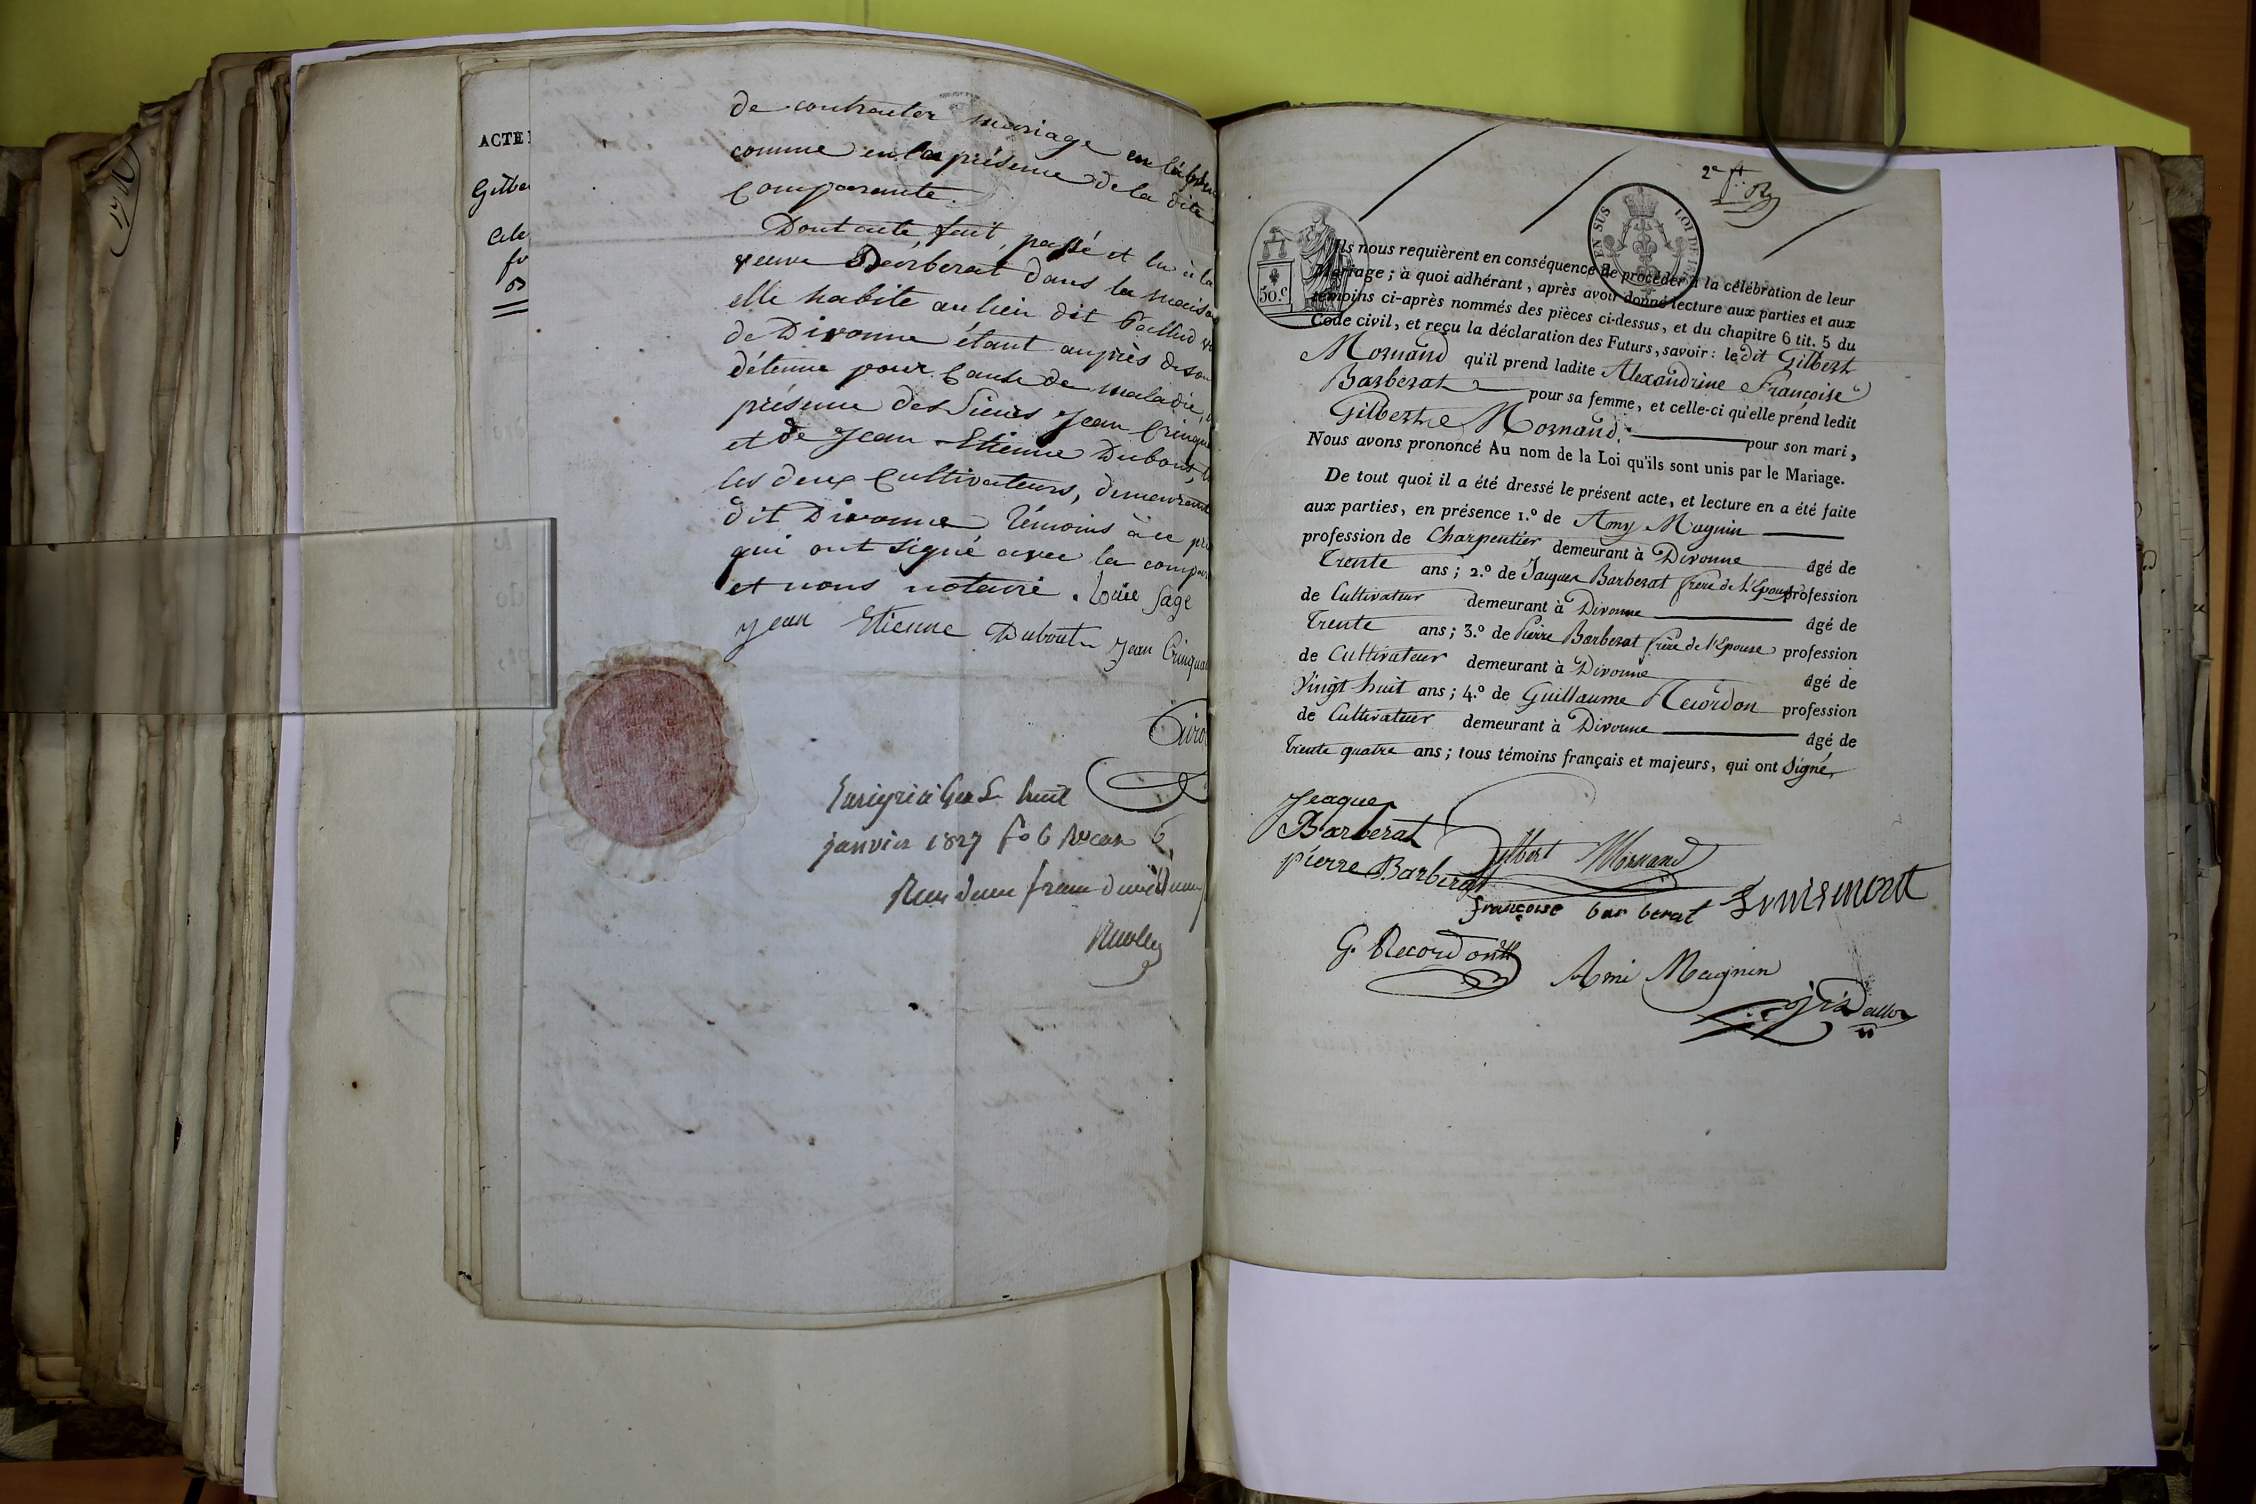 ACTE
Gilbe
de contracter mariage en l'absen
comme en la présence de la dite
Comparante.
Dont acte, fait, passé et lu à la
veuve Barberat dans la maison
elle habite au lieu dit
de Divonne étant auprès de son
détenue pour cause de maladie,
présence des Sieurs Jean Crinqua
et de Jean Etienne Dubout,
les deux Cultivateurs, demeurant
dit Divonne témoins à ce pré
qui ont signé avec la compar
et nous notaire. Louise Sage
Jean Etienne Dubout Jean Crinqua
huit
janvier 1827 fo 6
2e ft
EN SUS
LOI DE
50.c
Ils nous requièrent en conséquence de procéder à la célébration de leur
Mariage; à quoi adhérant, après avoir donné lecture aux parties et aux
témoins ci-après nommés des pièces ci-dessus, et du chapitre 6 tit. 5 du
Code civil, et reçu la déclaration des Futurs, savoir: le dit Gilbert
Mornand qu'il prend ladite Alexandrine Françoise
Barberat pour sa femme, et celle-ci qu'elle prend ledit
Gilbert Mornand. pour son mari,
Nous avons prononcé Au nom de la Loi qu'ils sont unis par le Mariage.
De tout quoi il a été dressé le présent acte, et lecture en a été faite
aux parties, en présence 1.º de Amy Magnin
profession de Charpentier demeurant à Divonne âgé de
Trente ans; 2.º de Jaques Barberat frère de l'Epouse profession
de Cultivateur demeurant à Divonne âgé de
Trente ans; 3.º de Pierre Barberat frère de l'Epouse profession
de Cultivateur demeurant à Divonne âgé de
Vingt huit ans; 4.º de Guillaume Recordon profession
de Cultivateur demeurant à Divonne âgé de
Trente quatre ans; tous témoins français et majeurs, qui ont Signé,
Jeaques
Barberat
Gilbert Mornand
pierre Barberat
françoise bar berat Louis mont
G. Recordon
Ami Magnin